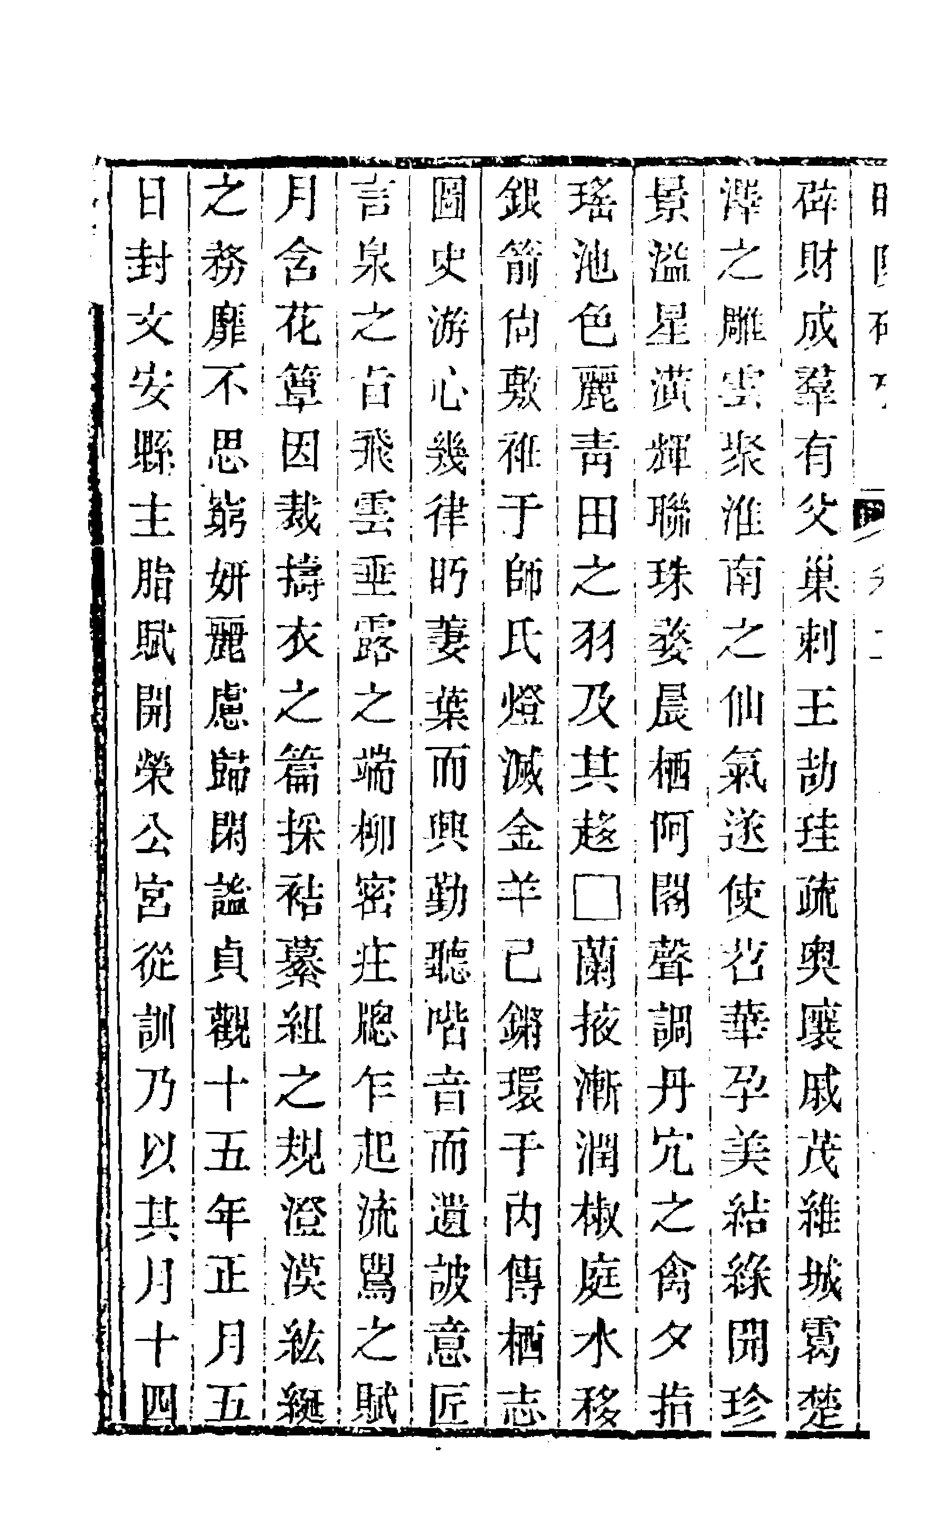 辟財成羣有父巢刺王劼珪疏奥壤戚茂維城靄楚
澤之雕雲聚淮南之仙氣遂使苕華孕美結綠開珍
景溢星潢輝聯珠婺晨栖阿閣聲調丹穴之禽夕指
瑤池色麗靑田之羽及其趍□蘭掖漸潤椒庭水移
銀箭尙敷袵于師氏燈滅金羊已鏘環于内傳栖志
圖史游心幾律眄萋葉而興勤聽喈音而遺詖意匠
言泉之旨飛雲垂露之端柳密庄牎乍起流鶯之賦
月含花簟因裁擣衣之篇採袺纂組之規澄漠紘綖
之務靡不思窮妍麗慮歸閑謐貞觀十五年正月五
日封文安縣主脂賦開榮公宮從訓乃以其月十四